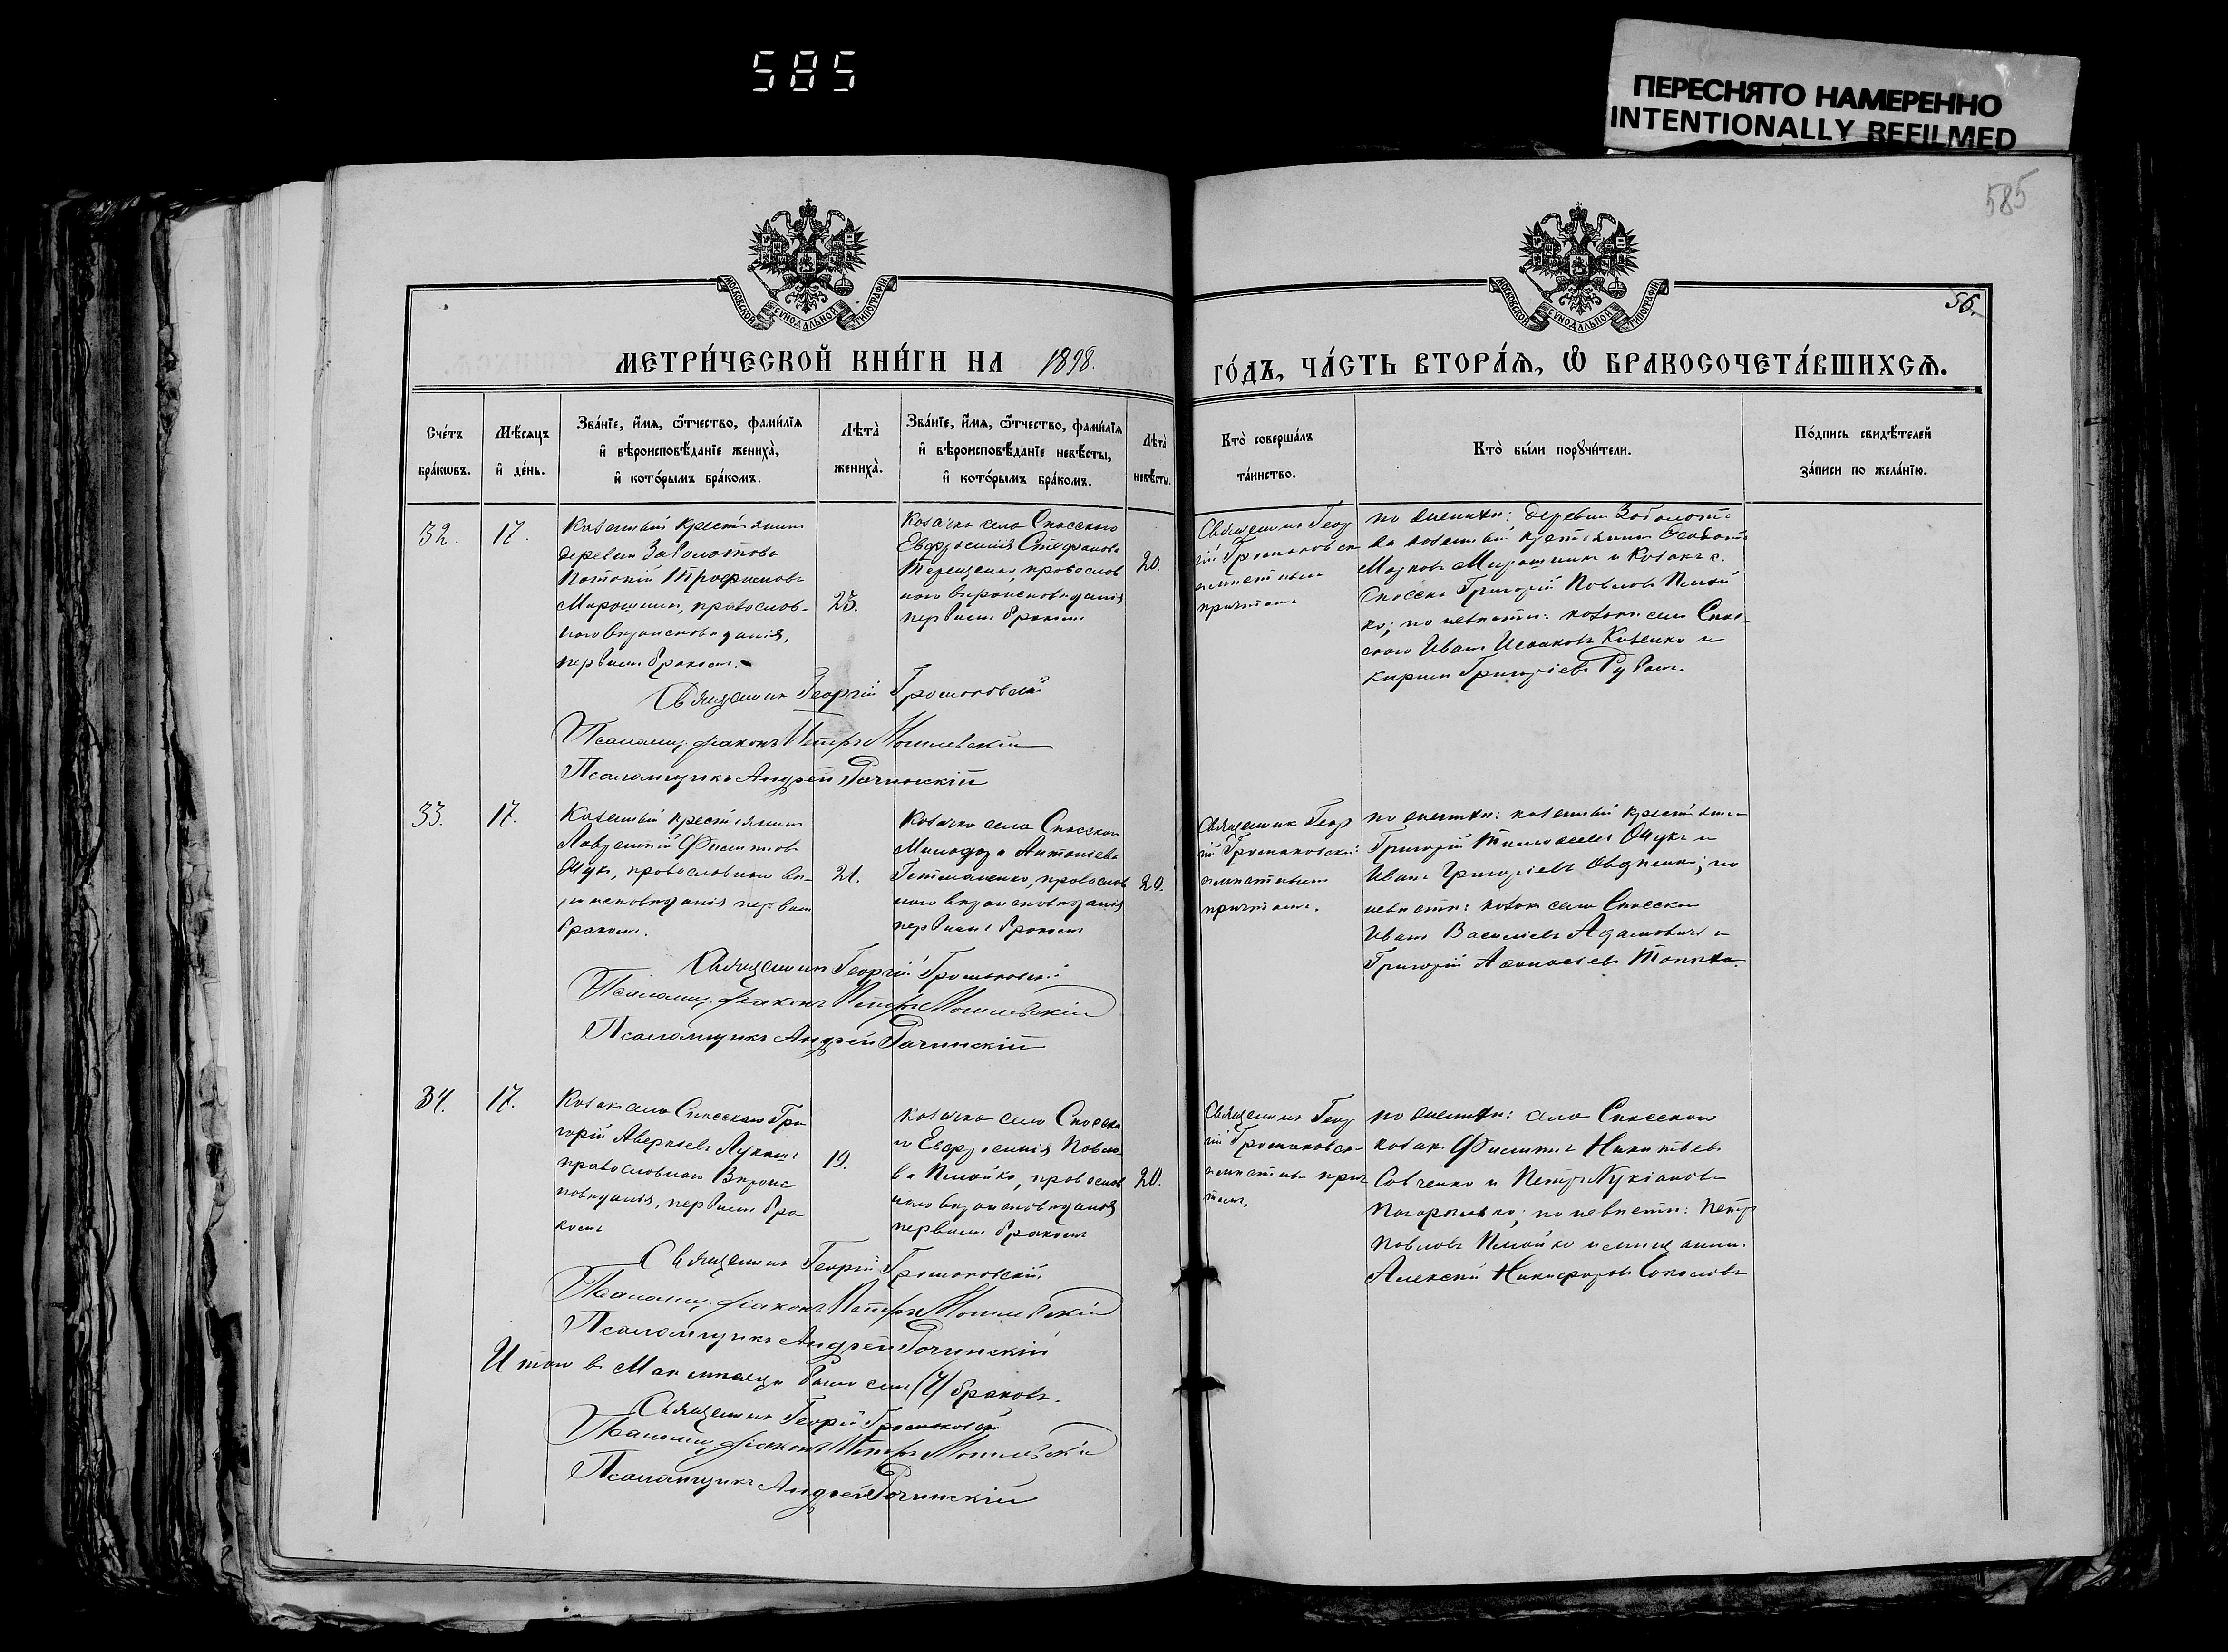 585
ПЕРЕСНЯТО НАМЕРЕННО
INTENTIONALLY REFILMED
585
МОСКОВСКОЙ СѴНОДАЛЬНОЙ ТИПОГРАФІИ
МОСКОВСКОЙ СѴНОДАЛЬНОЙ ТИПОГРАФІИ
56.
МЕТРИ́ЧЕСКОЙ КНИ́ГИ НА 1898.
ГО́ДЪ, ЧА́СТЬ ВТОРА́Ѧ, Ѽ БРАКОСОЧЕТА́ВШИХСѦ.
Сче́тъ
бра́кѡвъ.
Мѣ́сѧцъ
и҆ де́нь.
Зва́нїе, и҆́мѧ, ѻ҆́тчество, фами́лїѧ
и҆ вѣроисповѣ́данїе жениха̀,
и҆ кото́рымъ бра́комъ.
Лѣта̀
жениха̀.
Зва́нїе, и҆́мѧ, ѻ҆́тчество, фами́лїѧ
и҆ вѣроисповѣ́данїе невѣ́сты,
и҆ кото́рымъ бра́комъ.
Лѣта̀
невѣ́сты.
Кто̀ соверша́лъ
та́инство.
Кто̀ бы́ли порꙋчи́тели.
По́дпись свидѣ́телей
за́писи по жела́нїю.
32.
17.
Казенный крестьянинъ
деревни Заболотова
Потапій Трофимовъ
Мирошник, православ-
наго вѣроисповѣданія,
первымъ бракомъ.
25.
Козачка села Спасскаго
Евфросинія Стефанова
Терещенко, православ
наго вѣроисповѣданія
первымъ бракомъ
20.
Священникъ Геор
гій Громаковск
съ мѣстнымъ
причтомъ
по женихѣ: деревни Заболото
ва казенный крестьянинъ
Марковъ Мирошникъ и Козакъ с.
Спасска Григорій Павловъ Плюй
ко; по невѣстѣ: козаки села Спас-
скаго Иванъ Исааковъ Козенко и
Кирилъ Григоріевъ Рубанъ.
Священникъ Георгій Громаковскій
Псаломщ. діаконъ Петръ Могилевскій
Псаломщикъ Андрей Рачинскій
33.
17.
Казенный крестьянинъ
Лаврентій Филиповъ
Щукъ, православнаго вѣ-
роисповѣданія первымъ
бракомъ.
21.
Козачка села Спасскаго
Милодора Антоніева
Гетманенко, православ
наго вѣроисповѣданія
первымъ бракомъ
20.
Священник Геор
гій Громаковскій
съ мѣстнымъ
причтомъ.
по женихѣ: казенный крестьянинъ
Григорій Тимофеевъ Щукъ и
Иванъ Григоріевъ Овдіенко; по
невѣстѣ: козаки села Спасскаго
Иванъ Василіевъ Адамовичъ и
Григорій Аѳанасіевъ
Священникъ Георгій Громаковскій
Псаломщ. діаконъ Петръ Могилевскій
Псаломщикъ Андрей Рачинскій
34.
17.
Козакъ села Спасскаго Гри
горій Аверкіевъ Лукашъ
православнаго Вѣроис
повѣданія, первымъ бра
комъ
19.
Козачка села Спасска
го Евфросинія Павло
ва Плюйко, православ
наго вѣроисповѣданія
первымъ бракомъ
20.
Священникъ Геор
гій Громаковск
съ мѣстнымъ прич
томъ.
по женихѣ: села Спасскаго
козаки Филиппъ Никитіевъ
Савченко и Петръ Лукіановъ
Погорѣлько; по невѣстѣ: Петръ
Павловъ Плюйко и мѣщанинъ
Алексій Никифоровъ Соколовъ
Священникъ Георгій Громаковскій
Псаломщ. діаконъ Петръ Могилевскій
Псаломщикъ Андрей Рачинскій
Итого въ Маѣ мѣсяцѣ было семь (7) браковъ.
Священникъ Георгій Громаковскій
Псаломщ. діаконъ Петръ Могилевскій
Псаломщикъ Андрей Рачинскій